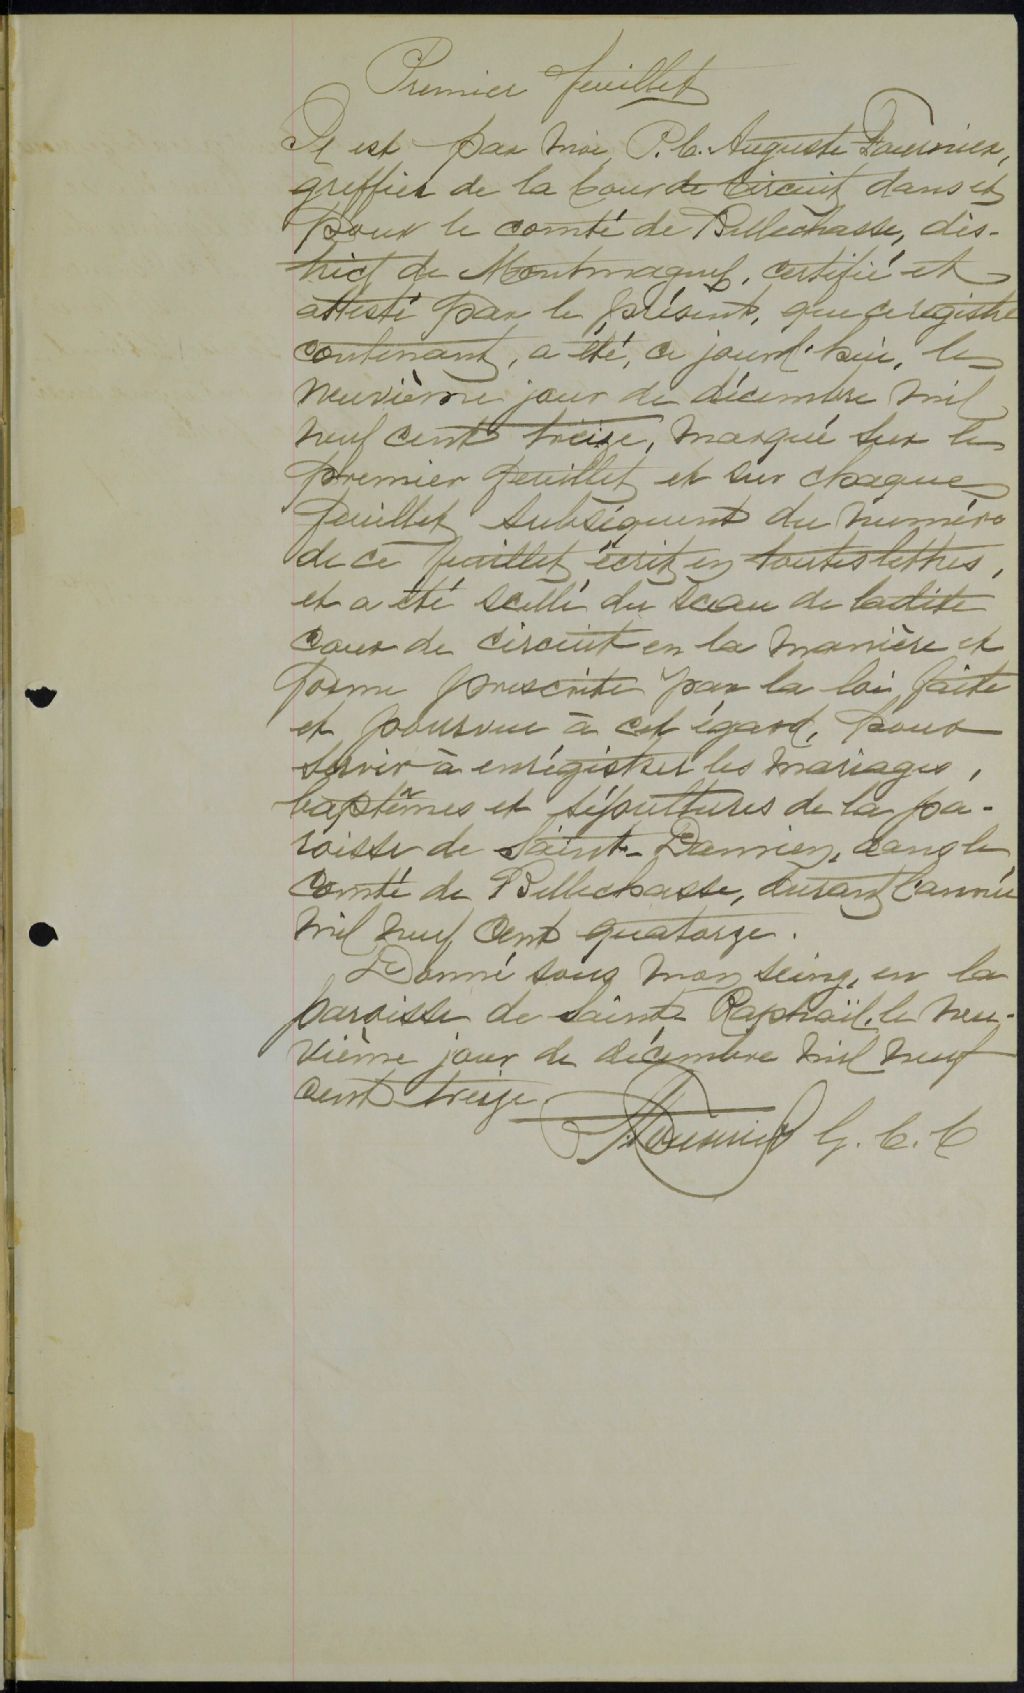 Premier feuillet
Il est par moi P. C. Auguste Fournier,
greffier de la Cour de Circuit dans et
pour le comté de Bellechasse, dis-
trict de Montmagny, certifié et
attesté par le présent, que ce registre
contenant, a été, ce jourd'hui, le
neuvième jour de décembre mil
neuf cent treize, marqué sur le
premier feuillet et sur chaque
feuillet subséquent du numéro
de ce feuillet écrit en toutes lettres,
et a été scellé du sceau de ladite
cour de circuit en la manière et
forme prescrite par la loi faite
et pourvue à cet égard, pour
servir à enrégistrer les mariages,
baptêmes et sépultures de la pa-
roisse de Saint-Damien, dans le
Comté de Bellechasse, durant l'année
mil neuf cent quatorze.
Donné sous mon seing, en la
paroisse de Saint Raphaël, le neu-
vième jour de décembre mil neuf
cent treize.
Fournier G. C. C